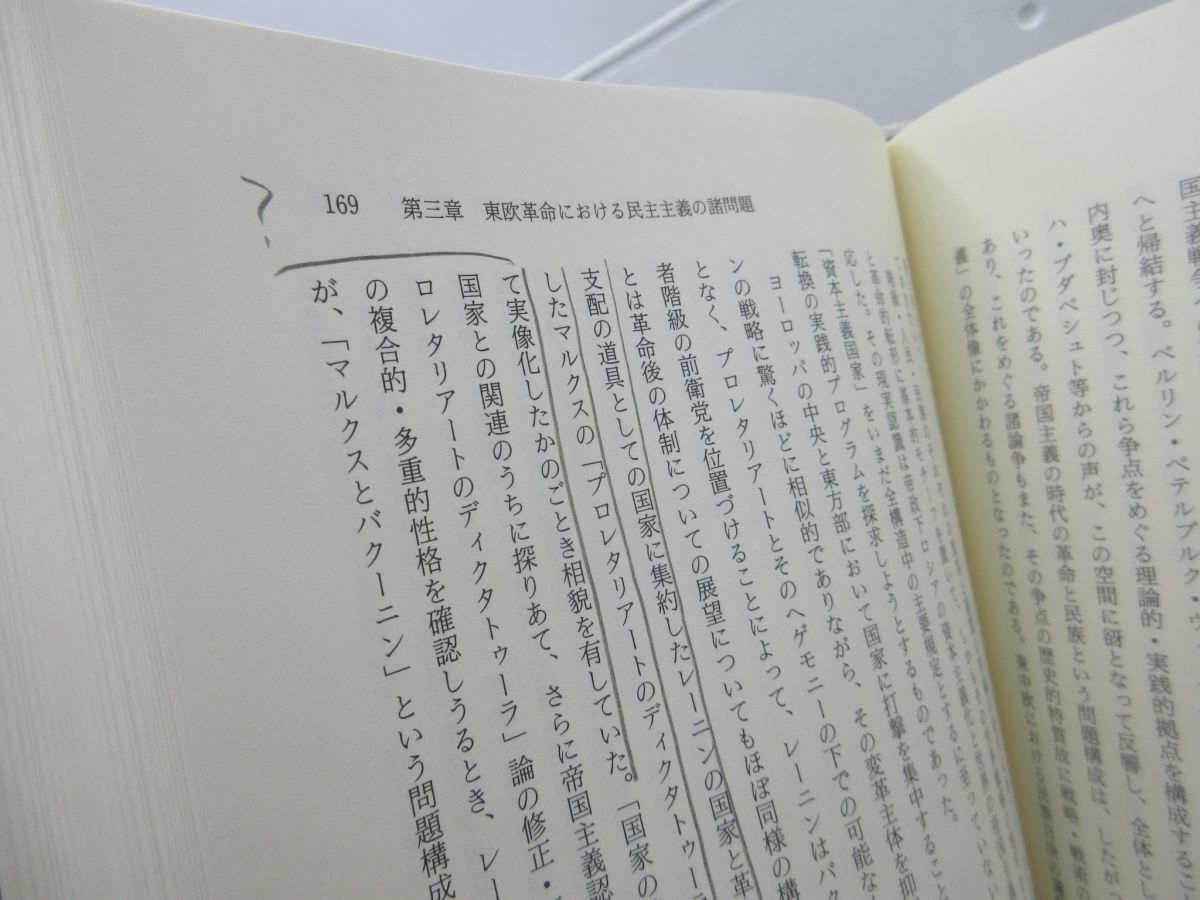 169 第三章 東欧革命における民主主義の諸問題
応した。その現実認識は帝政下ロシアの資本主義化
「資本主義国家」をいまだ全構造中の主要規定とするに至っていない
転換の実践的プログラムを探求しようとするものであった。
ヨーロッパの中央と東方部において国家に打撃を集中すること
ンの戦略に驚くほどに相似的でありながら、その変革主体を抑
となく、プロレタリアートとそのヘゲモニーの下での可能な
者階級の前衛党を位置づけることによって、レーニンはバク
とは革命後の体制についての展望についてもほぼ同様の構
支配の道具としての国家に集約したレーニンの国家と革
したマルクスの「プロレタリアートのディクタトゥーラ
て実像化したかのごとき相貌を有していた。「国家の
国家との関連のうちに探りあて、さらに帝国主義認
ロレタリアートのディクタトゥーラ」論の修正・
の複合的・多重的性格を確認しうるとき、レー
が、「マルクスとバクーニン」という問題構成
国主義戦
へと帰結する。ベルリン・ペテルブルク・ウ
内奥に封じつつ、これら争点をめぐる理論的・実践的拠点を構成するこ
ハ・ブダペシュト等からの声が、この空間に谺となって反響し、全体とし
いったのである。帝国主義の時代の革命と民族という問題構成は、したが
あり、これをめぐる諸論争もまた、その争点の歴史的特質故に戦略・戦術の
義」の全体像にかかわるものとなったのである。東中欧における民族自決の運